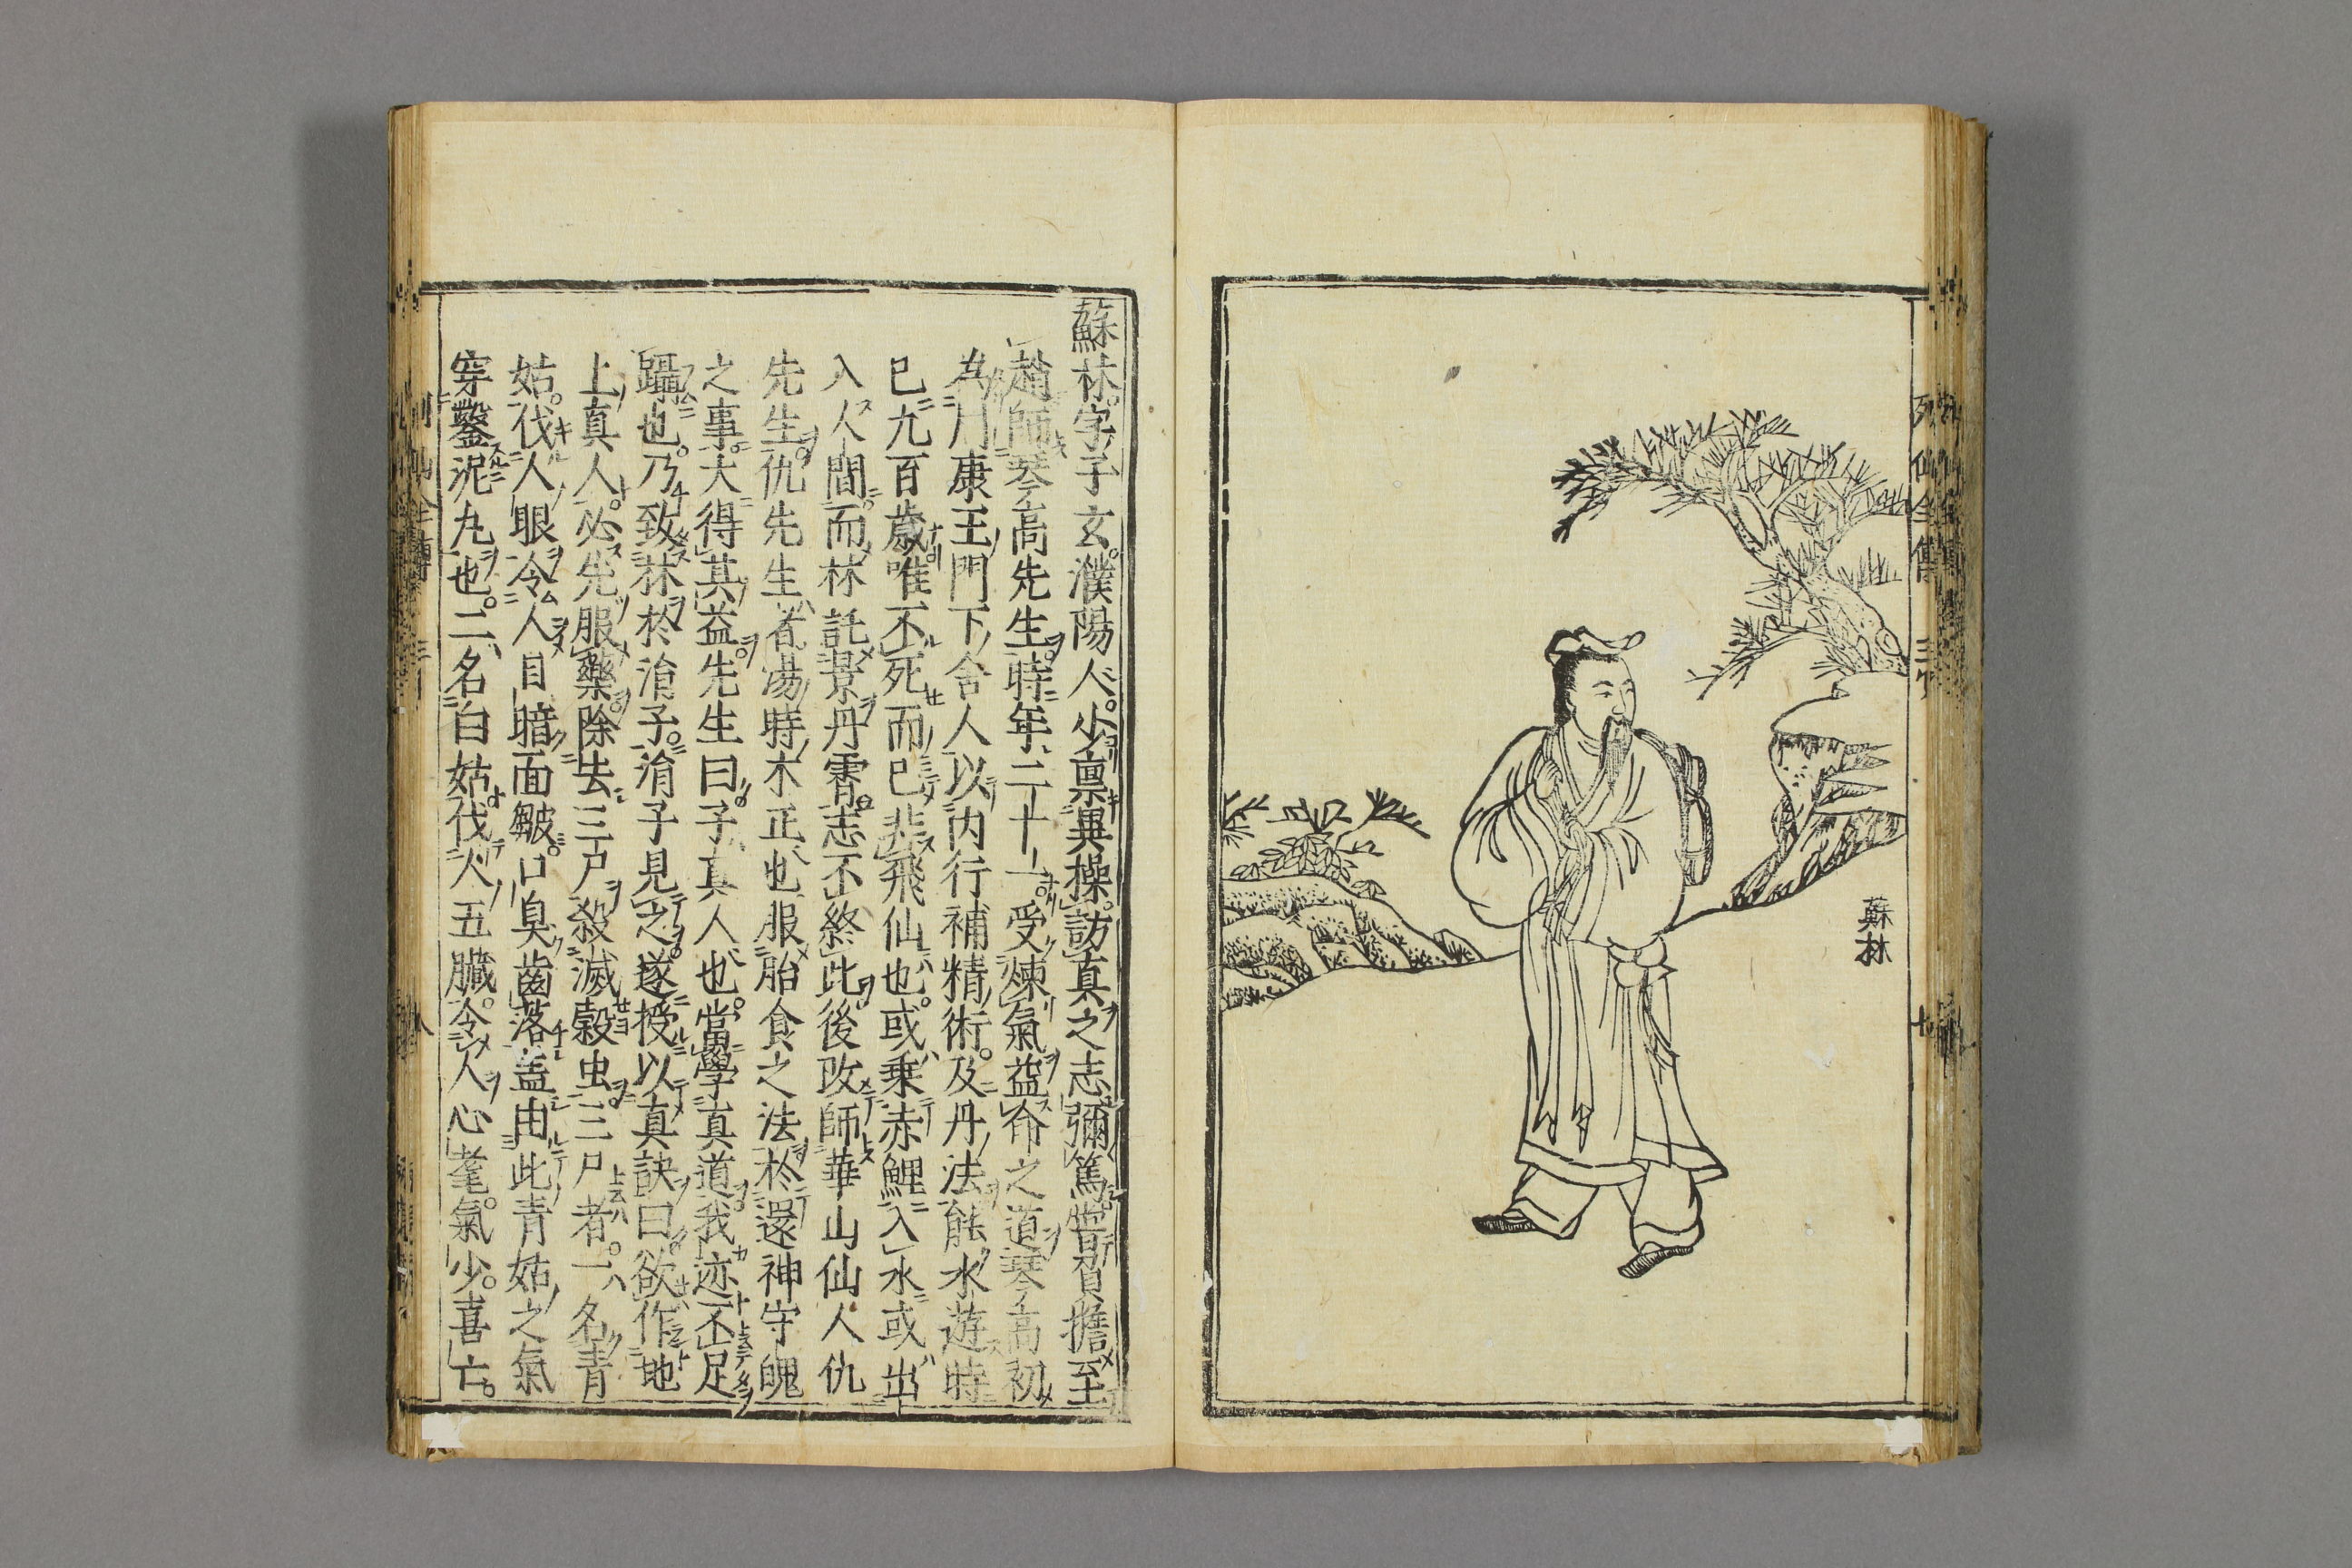 蘇林
蘇林。字子玄。濮陽人。少禀異操。訪真之志彌篤。嘗負擔至
趙師琴高先生。時年二十一。受煉氣益命之道。琴高初
為周康王門下舍人。以内行補精術。及丹法能水遊。時
已九百歲。唯不死而已。非飛仙也。或乗赤鯉入水。或出
入人間。而林託景丹霄。志不終此。後改師華山仙人仇
先生。仇先生者。湯時木正也。服胎食之法。於還神守魄
之事。大得其益。先生曰。子真人也。當學真道。我迹不足
躡也。乃致林於涓子。涓子見之。遂授以真訣曰。欲作地
上真人。必先服藥。除去三尸。殺滅穀虫。三尸者。一名青
姑。伐人眼。令人目暗面皺。口臭齒落。盖由此青姑之氣
穿鑿泥丸也。二名白姑。伐人五臟。令人心耄。氣少。喜亡。